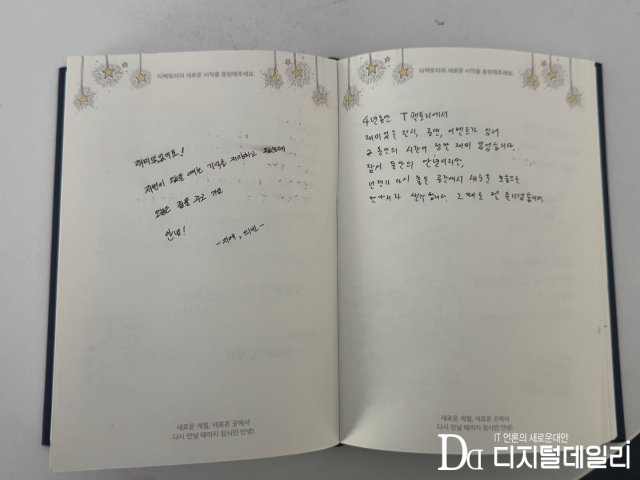 티팩토리의 새로운 시작을 응원해주세요.
재미있었어요!
저번이 왔을 때는 기억을 저장하고
오늘은 꿈을 두고 가요
안녕!
새로운 계절, 새로운 곳에서
다시 만날 때까지 잠시만 안녕!
티팩토리의 새로운 시작을 응원해주세요.
4년동안 T팩토리에서
재미있는 전시, 공연, 이벤트가 있어
그 동안의 시간이 정말 재미 있었습니다.
잠시 동안의 안녕이지만,
언젠가 다시 좋은 공간에서 새로운 모습으로
만나리라 생각합니다. 그 때도 전 즐기겠습니다.
새로운 계절, 새로운 곳에서
다시 만날 때까지 잠시만 안녕!
IT 언론의 새로운대안
DD 디지털데일리